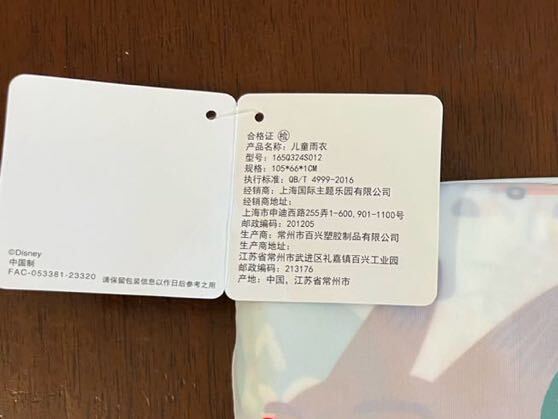 ©Disney
中国制
FAC-053381-23320 请保留包装信息以作日后参考之用
合格证 检
产品名称：儿童雨衣
型号：165Q324S012
规格：105*66*1CM
执行标准：QB/T 4999-2016
经销商：上海国际主题乐园有限公司
经销商地址：
上海市申迪西路255弄1-600,901-1100号
邮政编码：201205
生产商：常州市百兴塑胶制品有限公司
生产商地址：
江苏省常州市武进区礼嘉镇百兴工业园
邮政编码：213176
产地：中国，江苏省常州市